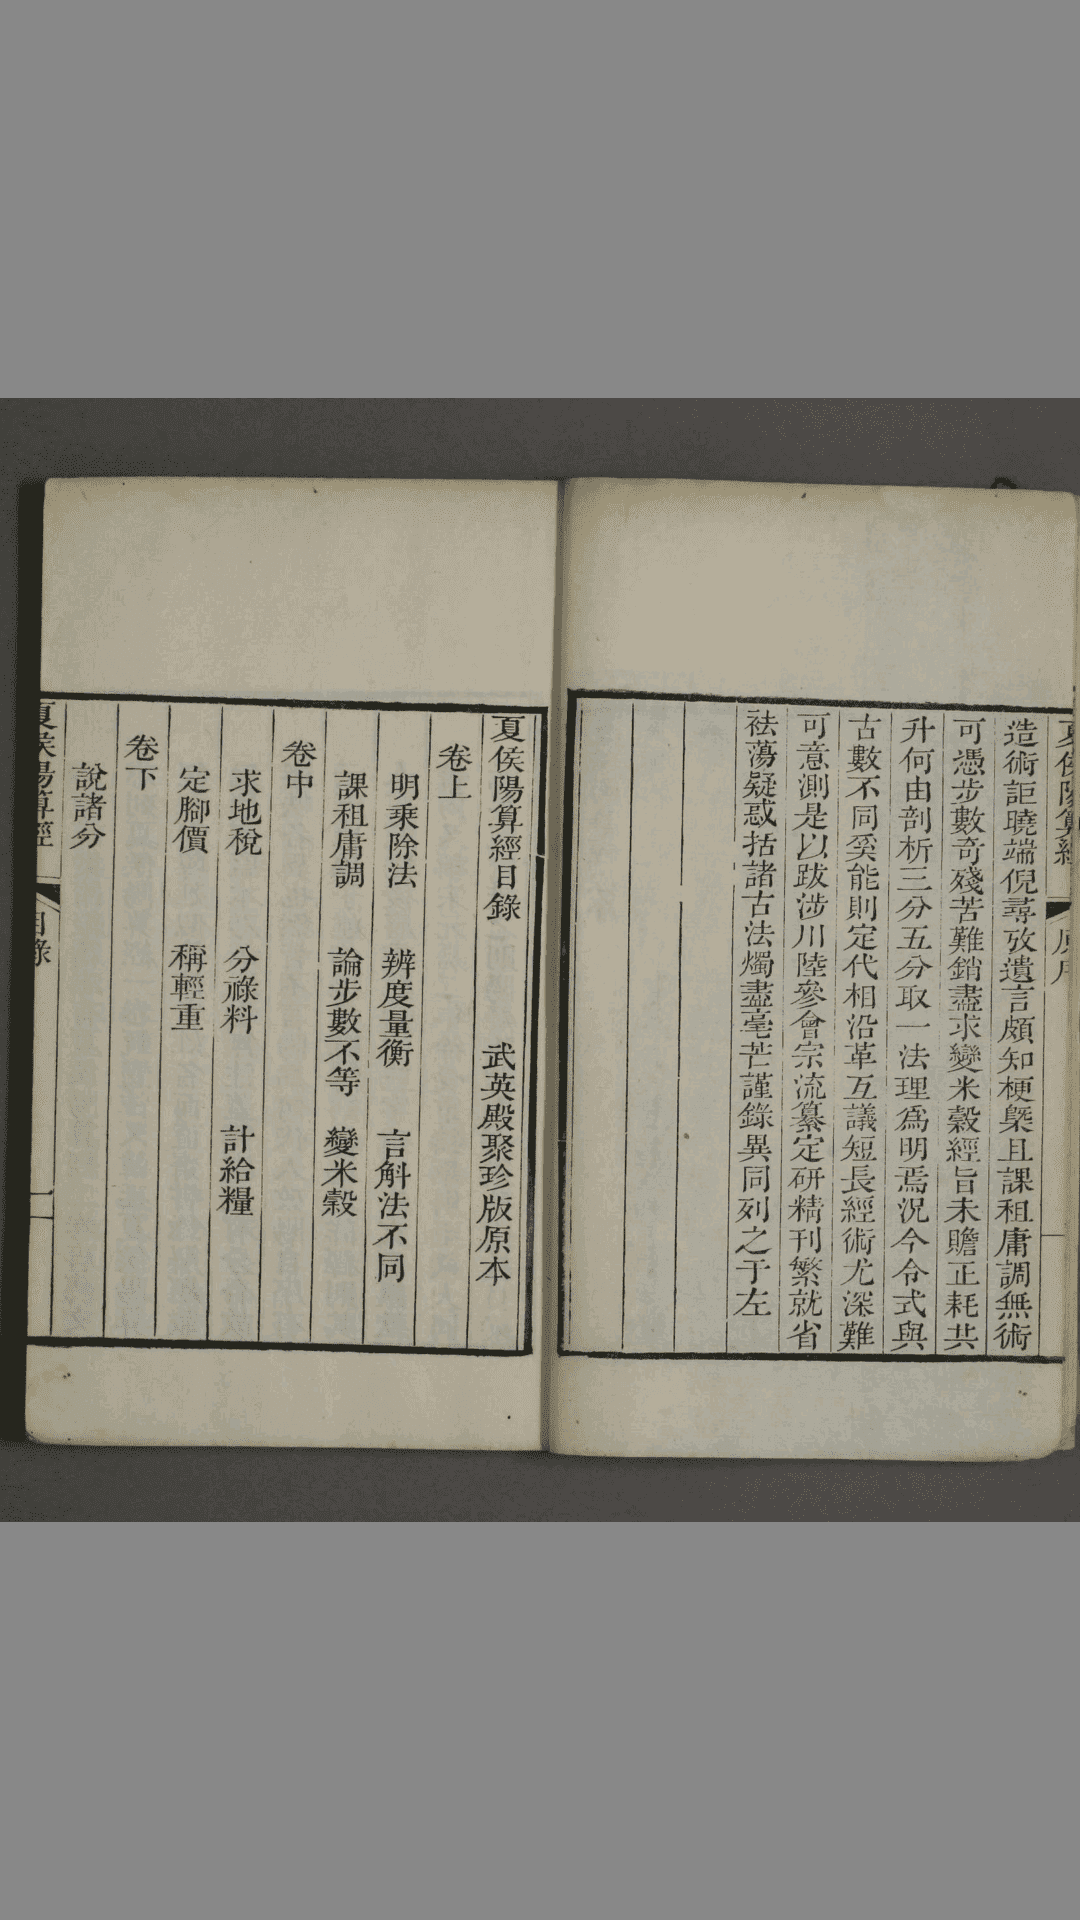 夏侯陽算經 原序
造術詎曉端倪尋攷遺言頗知梗槩且課租庸調無術
可憑步數奇殘苦難銷盡求變米穀經旨未贍正耗共
升何由剖析三分五分取一法理爲明焉況今令式與
古數不同奚能則定代相沿革互議短長經術尤深難
可意測是以跋涉川陸參會宗流纂定研精刊繁就省
祛蕩疑惑括諸古法燭盡毫芒謹錄異同列之于左
夏侯陽算經目錄 武英殿聚珍版原本
卷上
明乘除法 辨度量衡 言斛法不同
課租庸調 論步數不等 變米穀
卷中
求地稅 分祿料 計給糧
定腳價 稱輕重
卷下
說諸分
夏侯陽算經 目錄 一